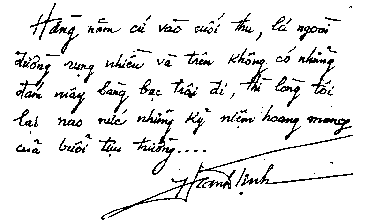 Hàng năm cứ vào cuối thu, lá ngoài
đường rụng nhiều và trên không có những
đám mây bàng bạc trôi đi, thì lòng tôi
lại nao nức những kỷ niệm hoang mang
của buổi tựu trường....
Thanh Tịnh